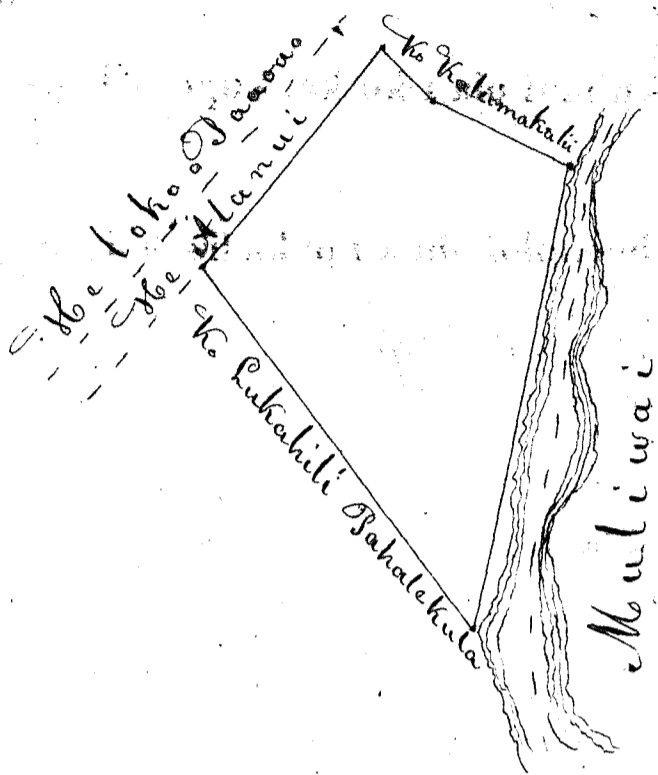 He loko o Paaoao
He Alanui
Ko Kalamakalii
Ko Lukahili Pahalekula
Muliwai